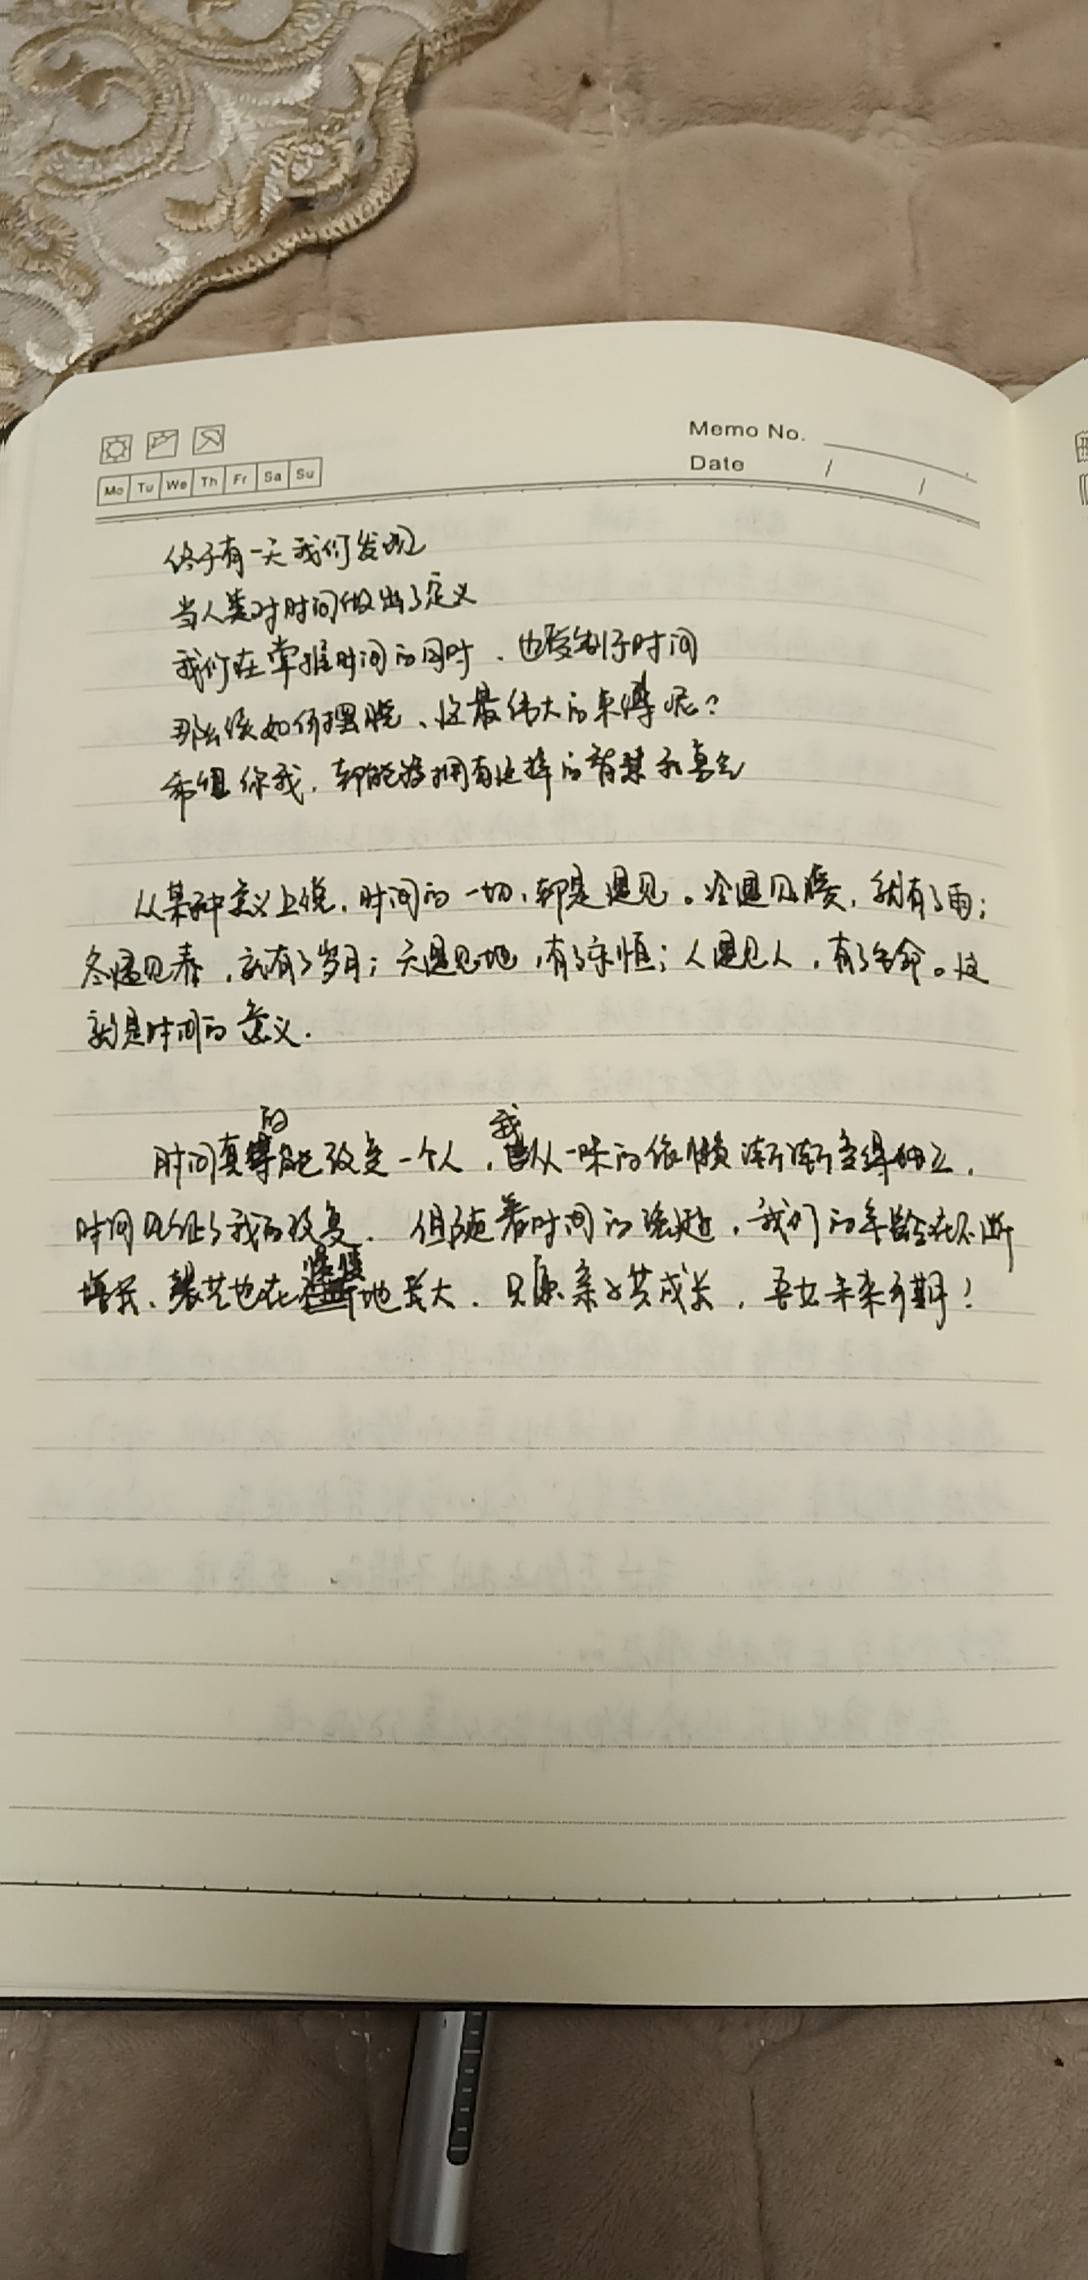 Memo No.
Mo Tu We Th Fr Sa Su
Date / /
终于有一天我们发现
当人类对时间做出了定义
我们在掌握时间的同时、也受制于时间
那么该如何摆脱、这最伟大的束缚呢?
希望你我,都能够拥有选择的智慧和勇气
从某种意义上说,时间的一切,都是遇见。冷遇见暖,就有了雨;
冬遇见春,就有了岁月;天遇见地,有了永恒;人遇见人,有了生命。这
就是时间的意义.
时间真的能改变一个人,我从一味的依赖渐渐变得独立,
时间见证了我的改变. 但随着时间的流逝,我们的年龄在不断
增长、也在慢慢地长大. 只愿亲子共成长,吾女未来可期!